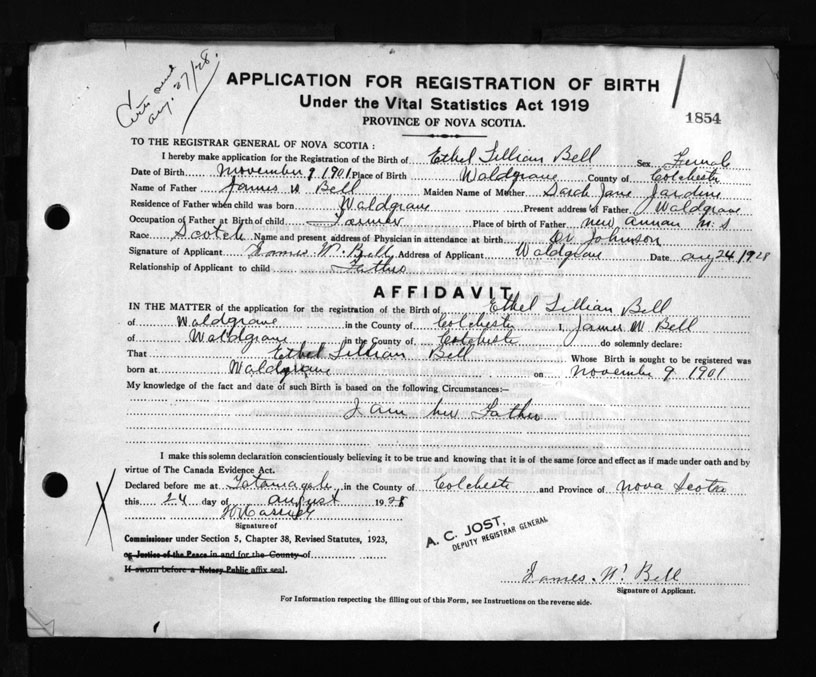 Certs sent
aug. 27/28.
APPLICATION FOR REGISTRATION OF BIRTH
Under the Vital Statistics Act 1919
PROVINCE OF NOVA SCOTIA.
1854
TO THE REGISTRAR GENERAL OF NOVA SCOTIA :
I hereby make application for the Registration of the Birth of Ethel Lillian Bell Sex Female
Date of Birth November 9 1901 Place of Birth Waldgrave County of Colchester
Name of Father James W Bell Maiden Name of Mother Sarah Jane Jardine
Residence of Father when child was born Waldgrave Present address of Father Waldgrave
Occupation of Father at Birth of child Farmer Place of birth of Father New Annan N. S
Race Scotch Name and present address of Physician in attendance at birth Dr Johnson
Signature of Applicant James W. Bell Address of Applicant Waldgrave Date Aug 24 1928
Relationship of Applicant to child Father
AFFIDAVIT
IN THE MATTER of the application for the registration of the Birth of Ethel Lillian Bell
of Waldgrave in the County of Colchester I, James W Bell
of Waldgrave in the County of Colcheste do solemnly declare:
That Ethel Lillian Bell Whose Birth is sought to be registered was
born at Waldgrave on November 9 1901
My knowledge of the fact and date of such Birth is based on the following Circumstances:—
I am her Father
I make this solemn declaration conscientiously believing it to be true and knowing that it is of the same force and effect as if made under oath and by
virtue of The Canada Evidence Act.
Declared before me at Tatamagouche in the County of Colcheste and Province of Nova Scotia
this 24 day of August 1928
Signature of
Commissioner under Section 5, Chapter 38, Revised Statutes, 1923,
or Justice of the Peace in and for the County of
If sworn before a Notary Public affix seal.
A. C. JOST,
DEPUTY REGISTRAR GENERAL
James W. Bell
Signature of Applicant.
For Information respecting the filling out of this Form, see Instructions on the reverse side.